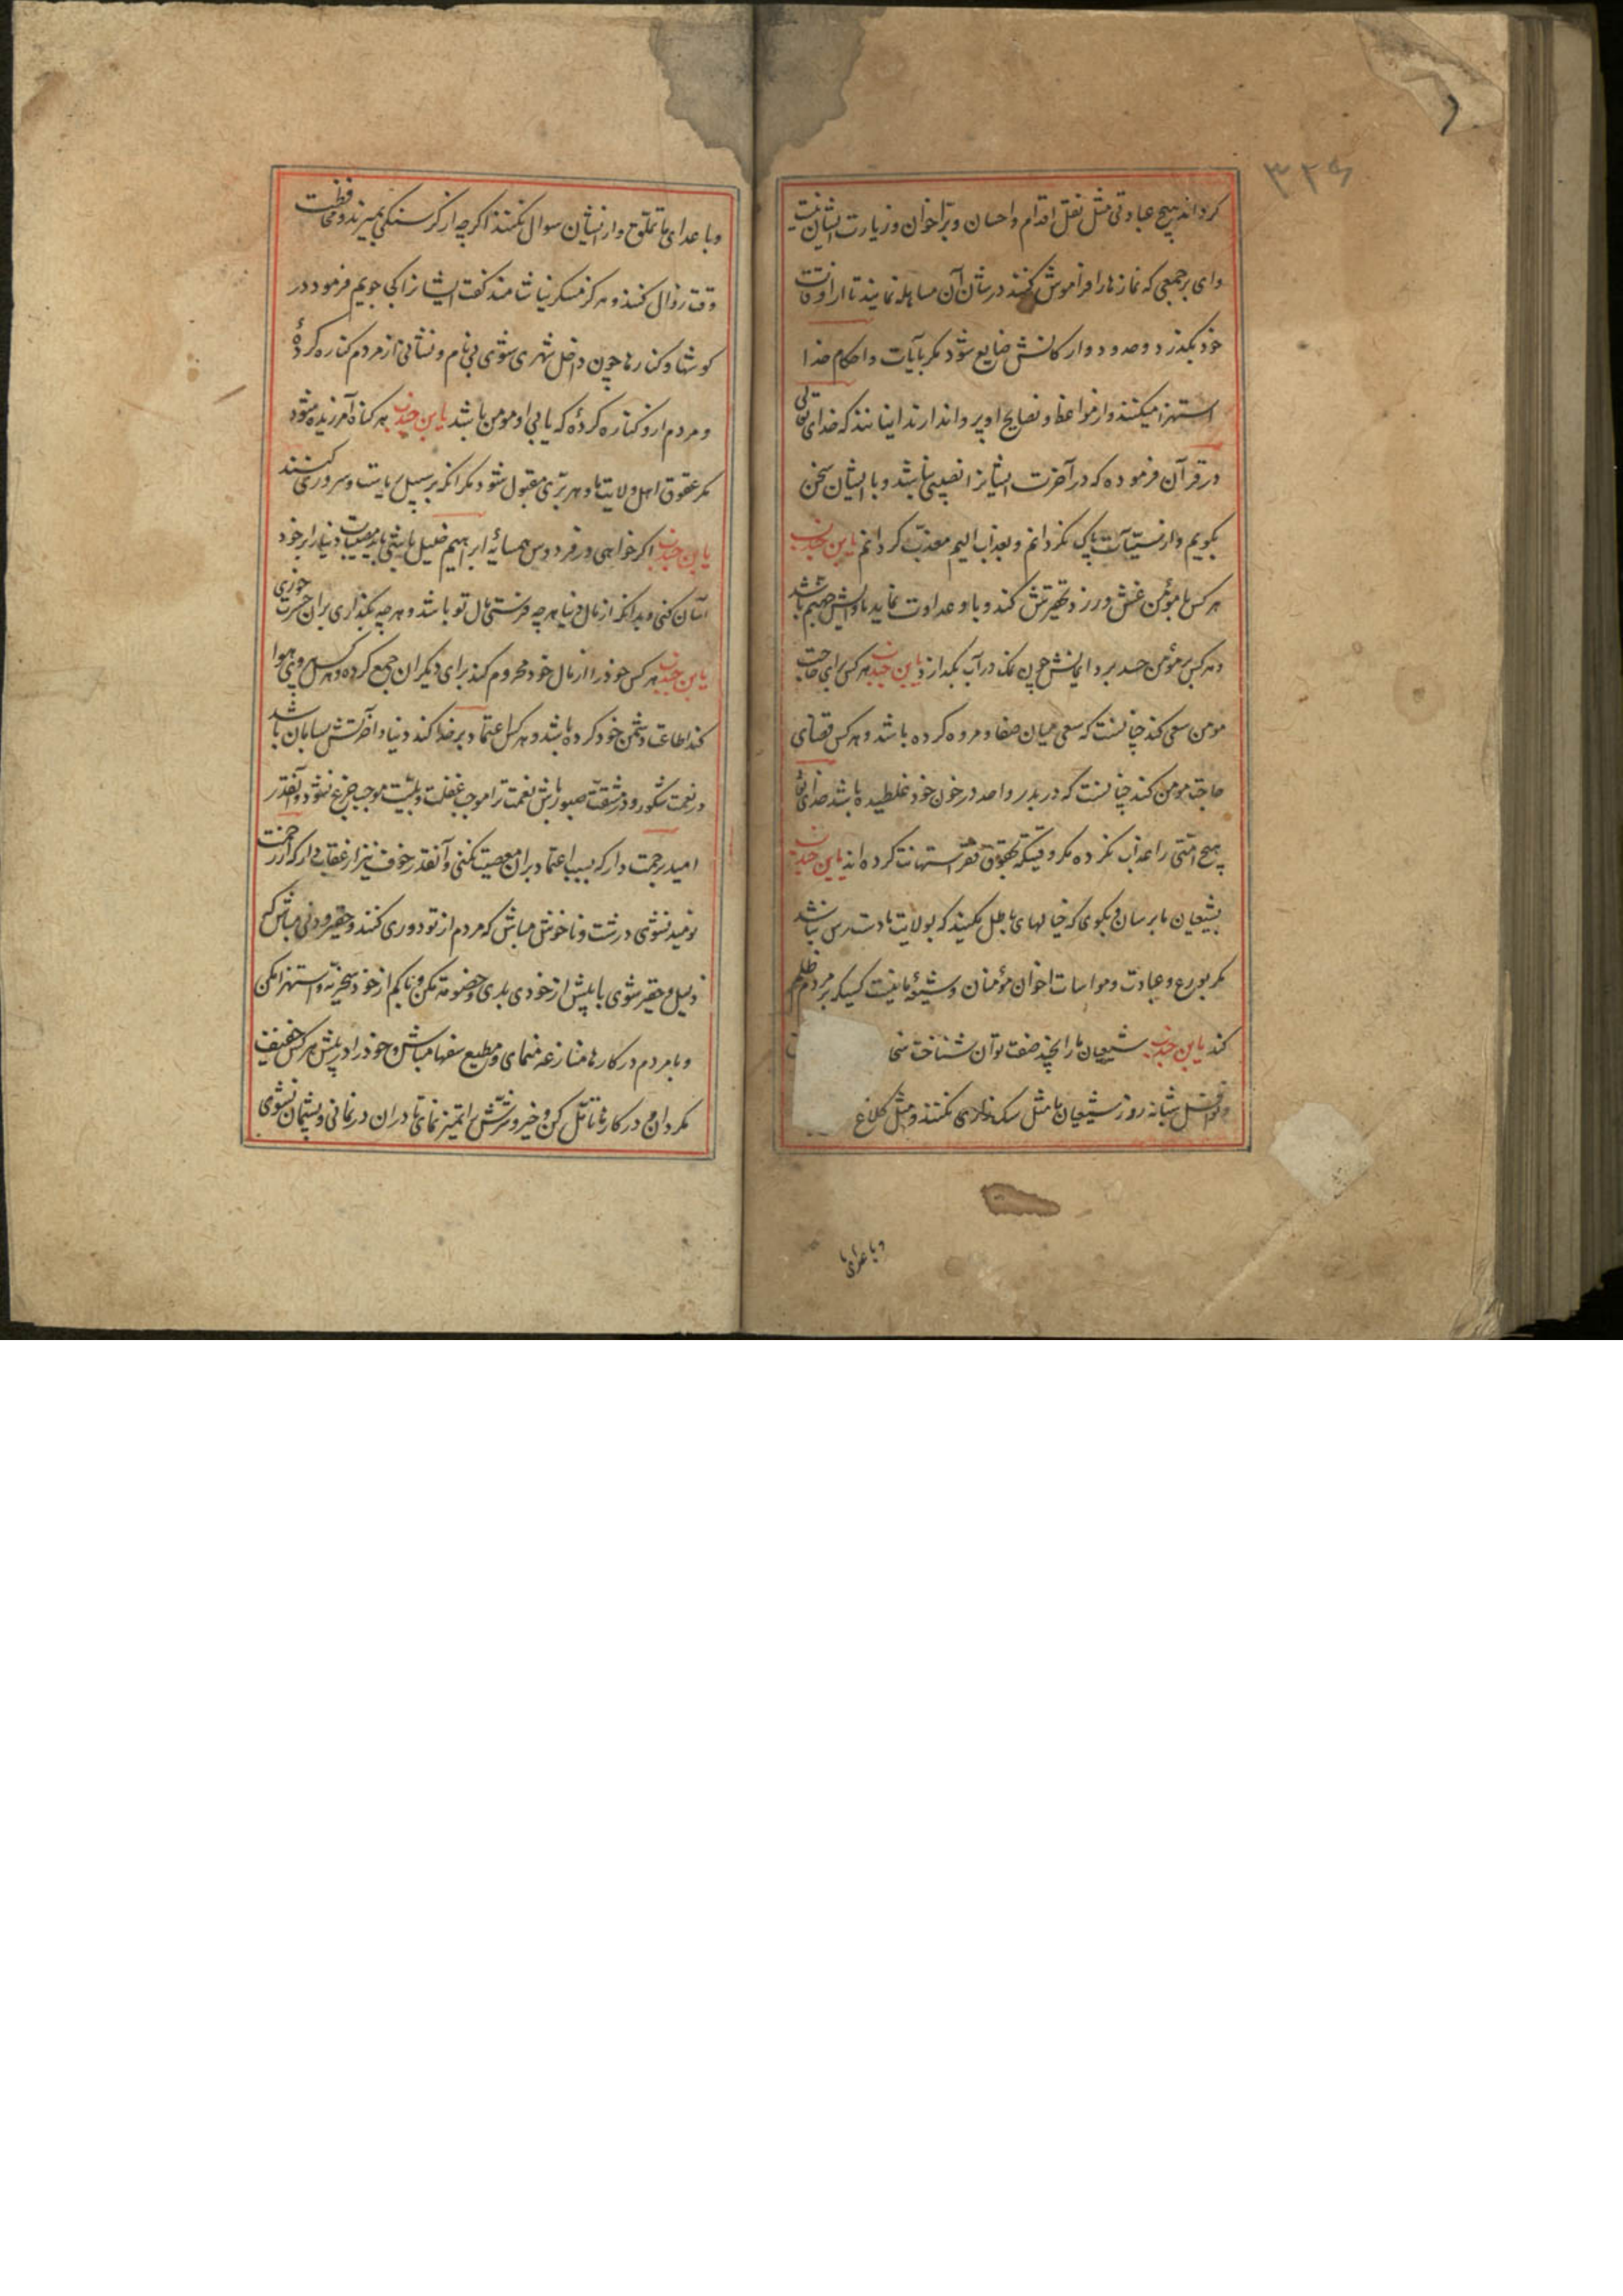 ۳۲۶
کرداند هیچ عبادتی مثل نقل اقدام و احسان و بر اخوان و زیارت ایشان نیست
وای بر جمعی که نمازها را فراموش کنند در شان آن مساهله نمایند تا از اوقات
خود بگذرد و حدود و ارکانش ضایع شود مگر بآیات و احکام خدا
استهزا میکنند و از مواعظ و نصایح او پروا ندارند اینانند که خدای تعالی
در قرآن فرموده که در آخرت ایشانرا نصیبی نباشد و با ایشان سخن
نکویم و از سیّآت پاک نکردانم و بعذاب الیم معذب کردانم یا بن جندب
هر کس با مؤمن غش ورزد و تحقیرش کند و با او عداوت نماید ماوایش جهیم باشد
و هر کس بر مؤمن حسد برد ایمانش چون نمک در آب بکدازد یا بن جندب هر کس برای حاجت
مومن سعی کند چنانست که سعی میان صفا و مروه کرده باشد و هر کس قضای
حاجت مومن کند چنانست که در بدر و احد در خون خود غلطیده باشد خدای تعالی
هیچ امّتی را عذاب نکرده مکر وقتیکه بحقوق فقرا استهانت کرده اند یا بن جندب
بشیعیان ما برسان و بکوی که خیالهای باطل نکنید که بولایت ما دست رس نباشد
مکر بورع و عبادت و مواسات اخوان مؤمنان و شیعهٔ ما نیست کسیکه بر مردم ظلم
کند یا بن جندب شیعیان ما را بچند صفت توان شناخت سخا
و نوافل شبانه روز شیعیان ما مثل سک زاری نکنند و مثل کلاغ
و با عدای ما
و با عدای ما تملق و از ایشان سوال نکنند اکر چه از کرسنکی بمیرند و محافظت
وقت زوال کنند و هرکز مسکر نیاشامند کفت ایشانرا کجا جویم فرمود در
کوشها و کنارها چون داخل شهری شوی بی نام و نشانی از مردم کناره کردهٔ
و مردم از و کناره کردهٔ که یابی او مومن باشد یا بن جندب هر کناه آمرزیده میشود
مکر عقوق اهل ولایت ما و هر برّی مقبول شود مکر انکه بر سبیل ریا و سروری کنند
یا بن جندب اکر خواهی در فردوس همسایهٔ ابراهیم خلیل باشی باید مصیبات دنیا را بر خود
آسان کنی و بدانکه از مال دنیا هر چه فرستی مال تو باشد و هر چه بکذاری بران حسرت خوری
یا بن جندب هر کس خود را از مال خود محروم کند برای دیکران جمع کرده و هر کس پیروی هوا
کند اطاعت دشمن خود کرده باشد و هر کس اعتماد بر خدا کند دنیا و آخرتش بسامان باشد
در نعمت شکور و در مشقت صبور باش نعمت ترا موجب غفلت و بلیّت موجب جزع نشود و آنقدر
امید برحمت دار که بسبب اعتماد بران معصیت نکنی و آنقدر خوف نیز از عقاب دار که از رحمت
نومید نشوی درشت و ناخوش مباش که مردم از تو دوری کنند و حقیر و دنی مباش که
ذلیل و حقیر شوی با پیش از خودی بدی و خصومت مکن و با کم از خود سخریّه و استهزا مکن
و با مردم در کارها منازعه منمای و مطیع سفها مباش و خود را در پیش هر کس خفیف
مکردان و در کارها تأمّل کن و خیر و شرّش را تمیز نمای تا دران درنمانی و پشیمان نشوی